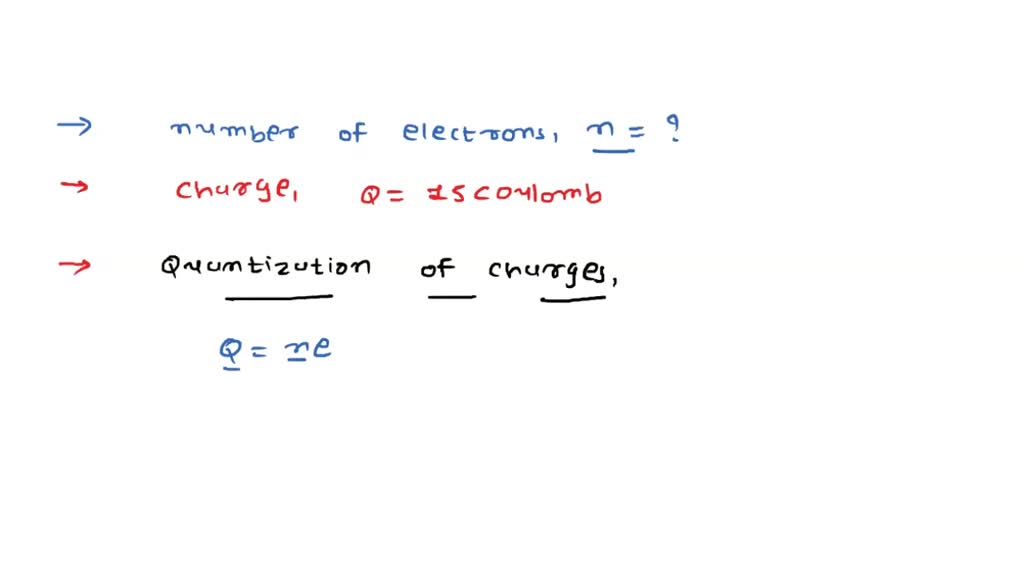 → number of electrons, n = ?
→ charge, Q = 25 coulomb
→ Quantization of charges,
Q = ne